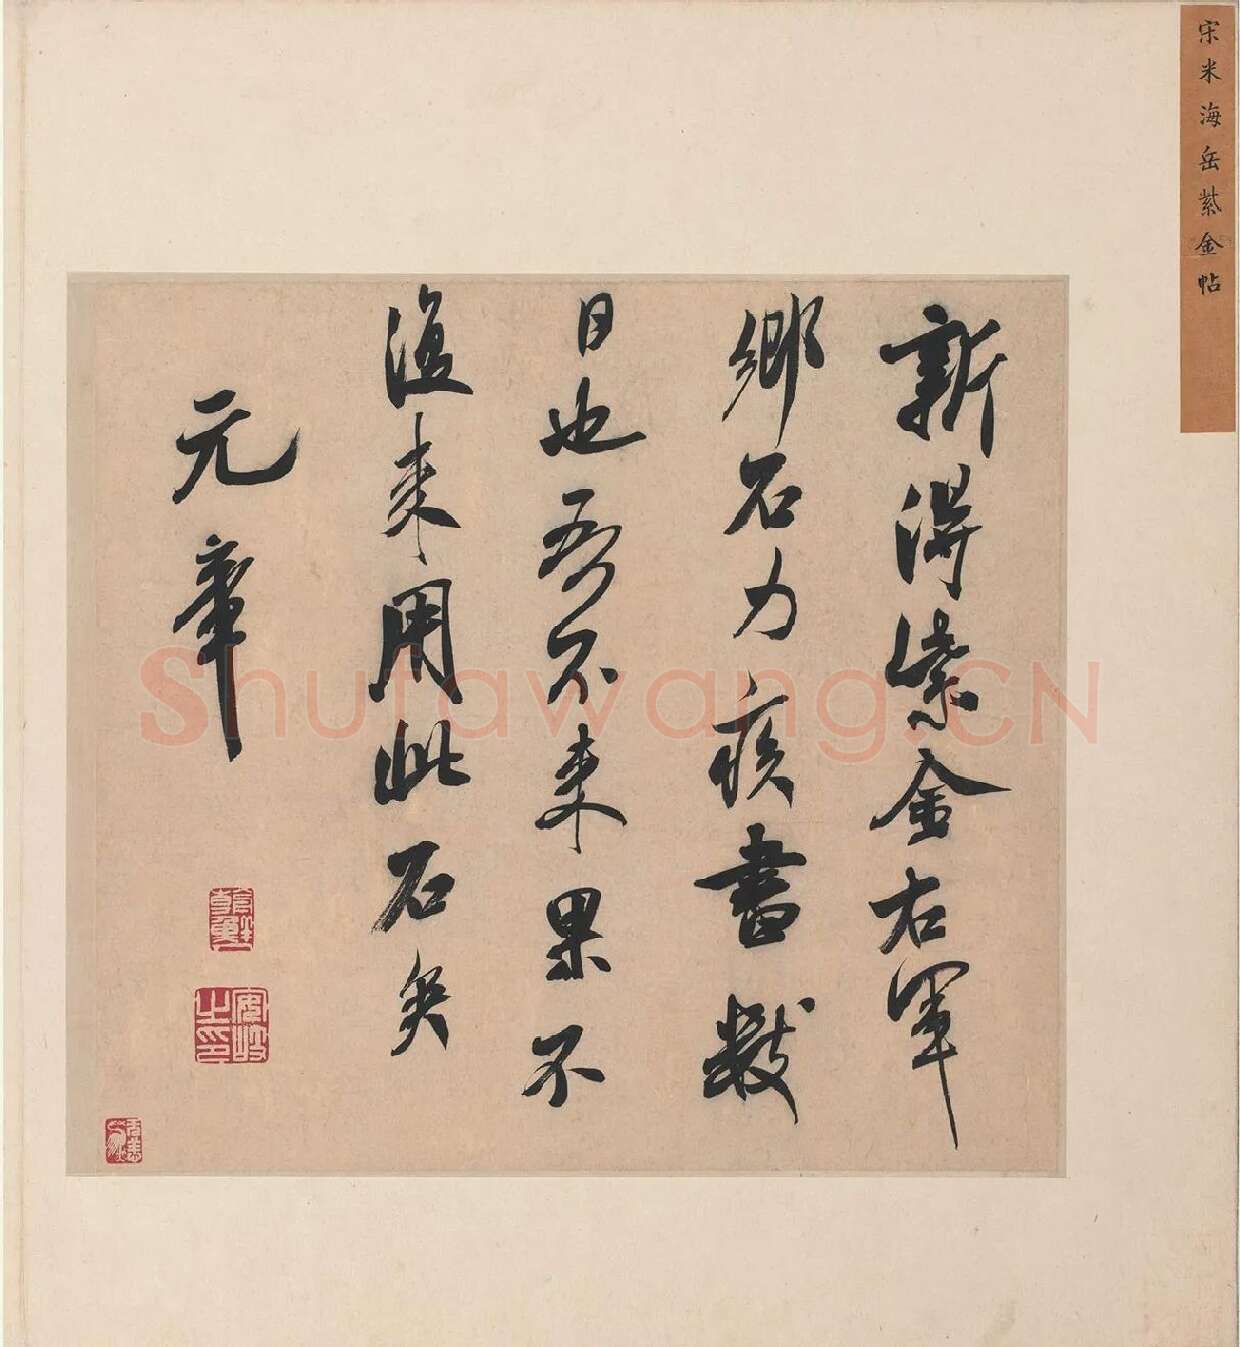 宋米海岳紫金帖
新得紫金右軍
鄉石力疾書數
日也吾不来果不
復来用此石矣
元章
Shufawang.CN